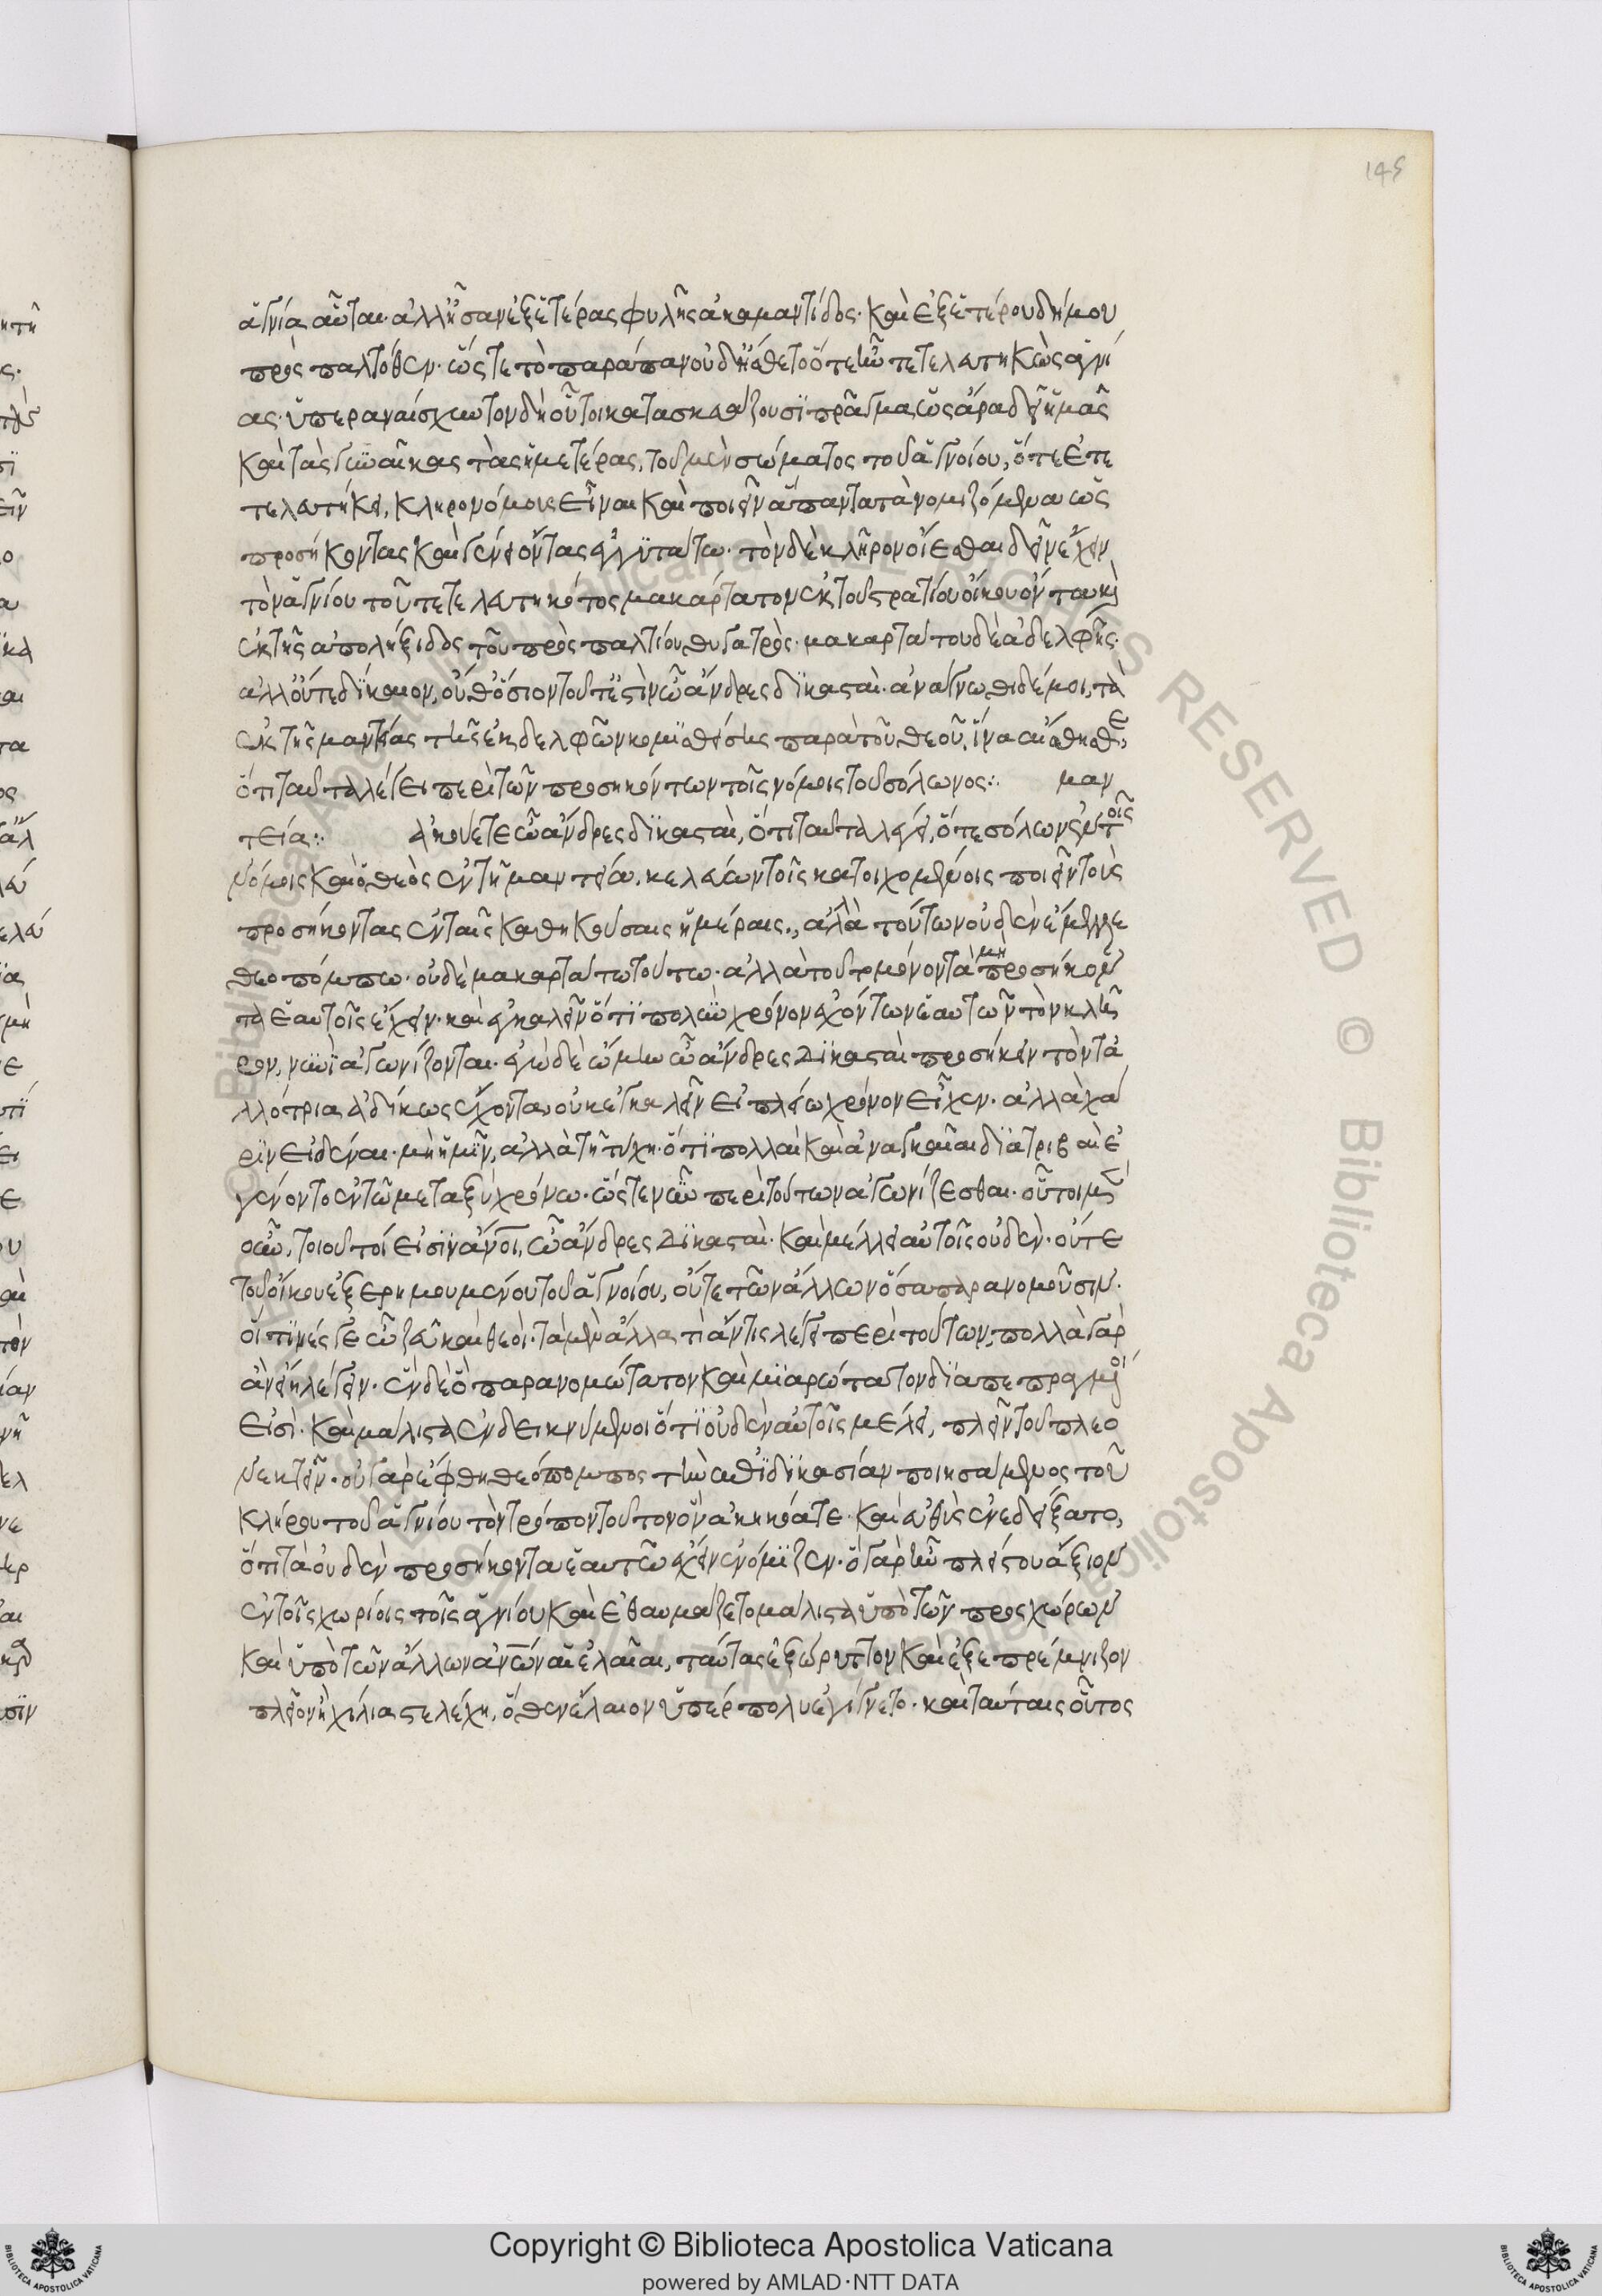 145
ἁγνία αὗται· ἀλλ' ἦσαν ἐξ ἑτέρας φυλῆς ἀκαμαντίδος· καὶ ἐξ ἑτέρου δήμου
προσπαλτόθεν· ὥστε τὸ παράπαν οὐδ' ᾔσθετο ὅτε ἦν τετελευτηκὼς ἁγνί
ας· ὑπεραναίσχυντον δὴ οὗτοι κατασκευάζουσι πρᾶγμα, ὡς ἄρα δεῖ ἡμᾶς
καὶ τὰς γυναῖκας τὰς ἡμετέρας, τοῦ μὲν σώματος τοῦ ἁγνίου, ὅτε ἐτε
τελευτήκει, κληρονόμους εἶναι καὶ ποιεῖν ἅπαντα τὰ νομιζόμενα ὡς
προσήκοντας καὶ γένει ὄντας ἐγγυτάτω· τὸν δὲ κλῆρον οἴεσθαι δεῖν ἔχειν
τὸν ἁγνίου τοῦ τετελευτηκότος μακάρτατον ἐκ τοῦ στρατίου οἴκου ὄντα καὶ
ἐκ τῆς ἀπολήξιδος τοῦ προσπαλτίου θυγατρὸς· μακαρτάτου δὲ ἀδελφῆς·
ἀλλ' οὔτε δίκαιον, οὔθ' ὅσιον τοῦτ' ἐστὶν ὦ ἄνδρες δικασταὶ· ἀνάγνωθι δέ μοι, τὰ
ἐκ τῆς μαντείας τῆς ἐκ δελφῶν κομισθείσης παρὰ τοῦ θεοῦ, ἵνα αἴσθησθε,
ὅτι ταὐτὰ λέγει περὶ τῶν προσηκόντων τοῖς νόμοις τοῦ σόλωνος: μαν
τεία: ἀκούετε ὦ ἄνδρες δικασταὶ, ὅτι ταὐτὰ λέγει, ὅ τε σόλων ἐν τοῖς
νόμοις καὶ ὁ θεὸς ἐν τῇ μαντείᾳ, κελεύων τοῖς κατοιχομένοις ποιεῖν τοὺς
προσήκοντας ἐν ταῖς καθηκούσαις ἡμέραις, ἀλλὰ τούτων οὐδὲν ἔμελλε
θεοπόμπω· οὐδὲ μακαρτάτω τούτω· ἀλλὰ τοῦτο μόνον τὰ μὴ προσήκον
τα ἑαυτοῖς ἔχειν· καὶ ἐγκαλεῖν ὅτι πολὺν χρόνον ἐχόντων ἑαυτῶν τὸν κλῆ
ρον, νυνὶ ἀγωνίζονται· ἐγὼ δὲ ᾤμην ὦ ἄνδρες δικασταὶ προσήκειν τὸν τἀ
λλότρια ἀδίκως ἔχοντα, οὐκ ἐγκαλεῖν εἰ πλείω χρόνον εἶχεν· ἀλλὰ χά
ριν εἰδέναι· μὴ ἡμῖν, ἀλλὰ τῇ τύχῃ· ὅτι πολλαὶ καὶ ἀναγκαῖαι διατριβαὶ ἐ
γένοντο ἐν τῷ μεταξὺ χρόνω· ὥστε νῦν περὶ τούτων ἀγωνίζεσθαι· οὗτοι μὲν
οὖν, τοιοῦτοί εἰσιν ἄνοι, ὦ ἄνδρες δικασταὶ· καὶ μέλλει αὐτοῖς οὐδὲν· οὔτε
τοῦ οἴκου ἐξερημουμένου τοῦ ἁγνίου, οὔτε τῶν ἄλλων ὅσα παρανομοῦσιν·
οἵτινές γε ὦ ζεῦ καὶ θεοὶ· τὰ μὲν ἄλλα τὶ ἄν τις λέγοι περὶ τούτων· πολλὰ γὰρ
ἂν εἴη λέγειν· ἓν δὲ ὃ παρανομώτατον καὶ μιαρώτατον διαπεπραγμένοι
εἰσὶ· καὶ μάλιστα ἐνδεικνύμενοι ὅτι οὐδὲν αὐτοῖς μέλει, πλὴν τοῦ πλεο
νεκτεῖν· οὐ γὰρ ἔφθη θεόπομπος τὴν ἐπιδικασίαν ποιησάμενος τοῦ
κλήρου τοῦ ἁγνίου τὸν τρόπον τοῦτον ὃν ἀκηκόατε· καὶ εὐθὺς ἐνεδείξατο,
ὅτι τὰ οὐδὲν προσήκοντα ἑαυτῶ ἔχειν ἐνόμιζεν· ὃ γὰρ ἦν πλείστου ἄξιον
ἐν τοῖς χωρίοις τοῖς ἁγνίου καὶ ἐθαυμάζετο μάλιστα ὑπὸ τῶν προσχώρων
καὶ ὑπὸ τῶν ἄλλων ἀνων αἱ ἐλαῖαι, ταύτας ἐξώρυττον καὶ ἐξεπρέμνιζον
πλεῖον ἢ χίλια στελέχη, ὅθεν ἔλαιον ὑπέρπολυ ἐγίγνετο· καὶ ταύταις οὗτος
Copyright © Biblioteca Apostolica Vaticana
powered by AMLAD·NTT DATA